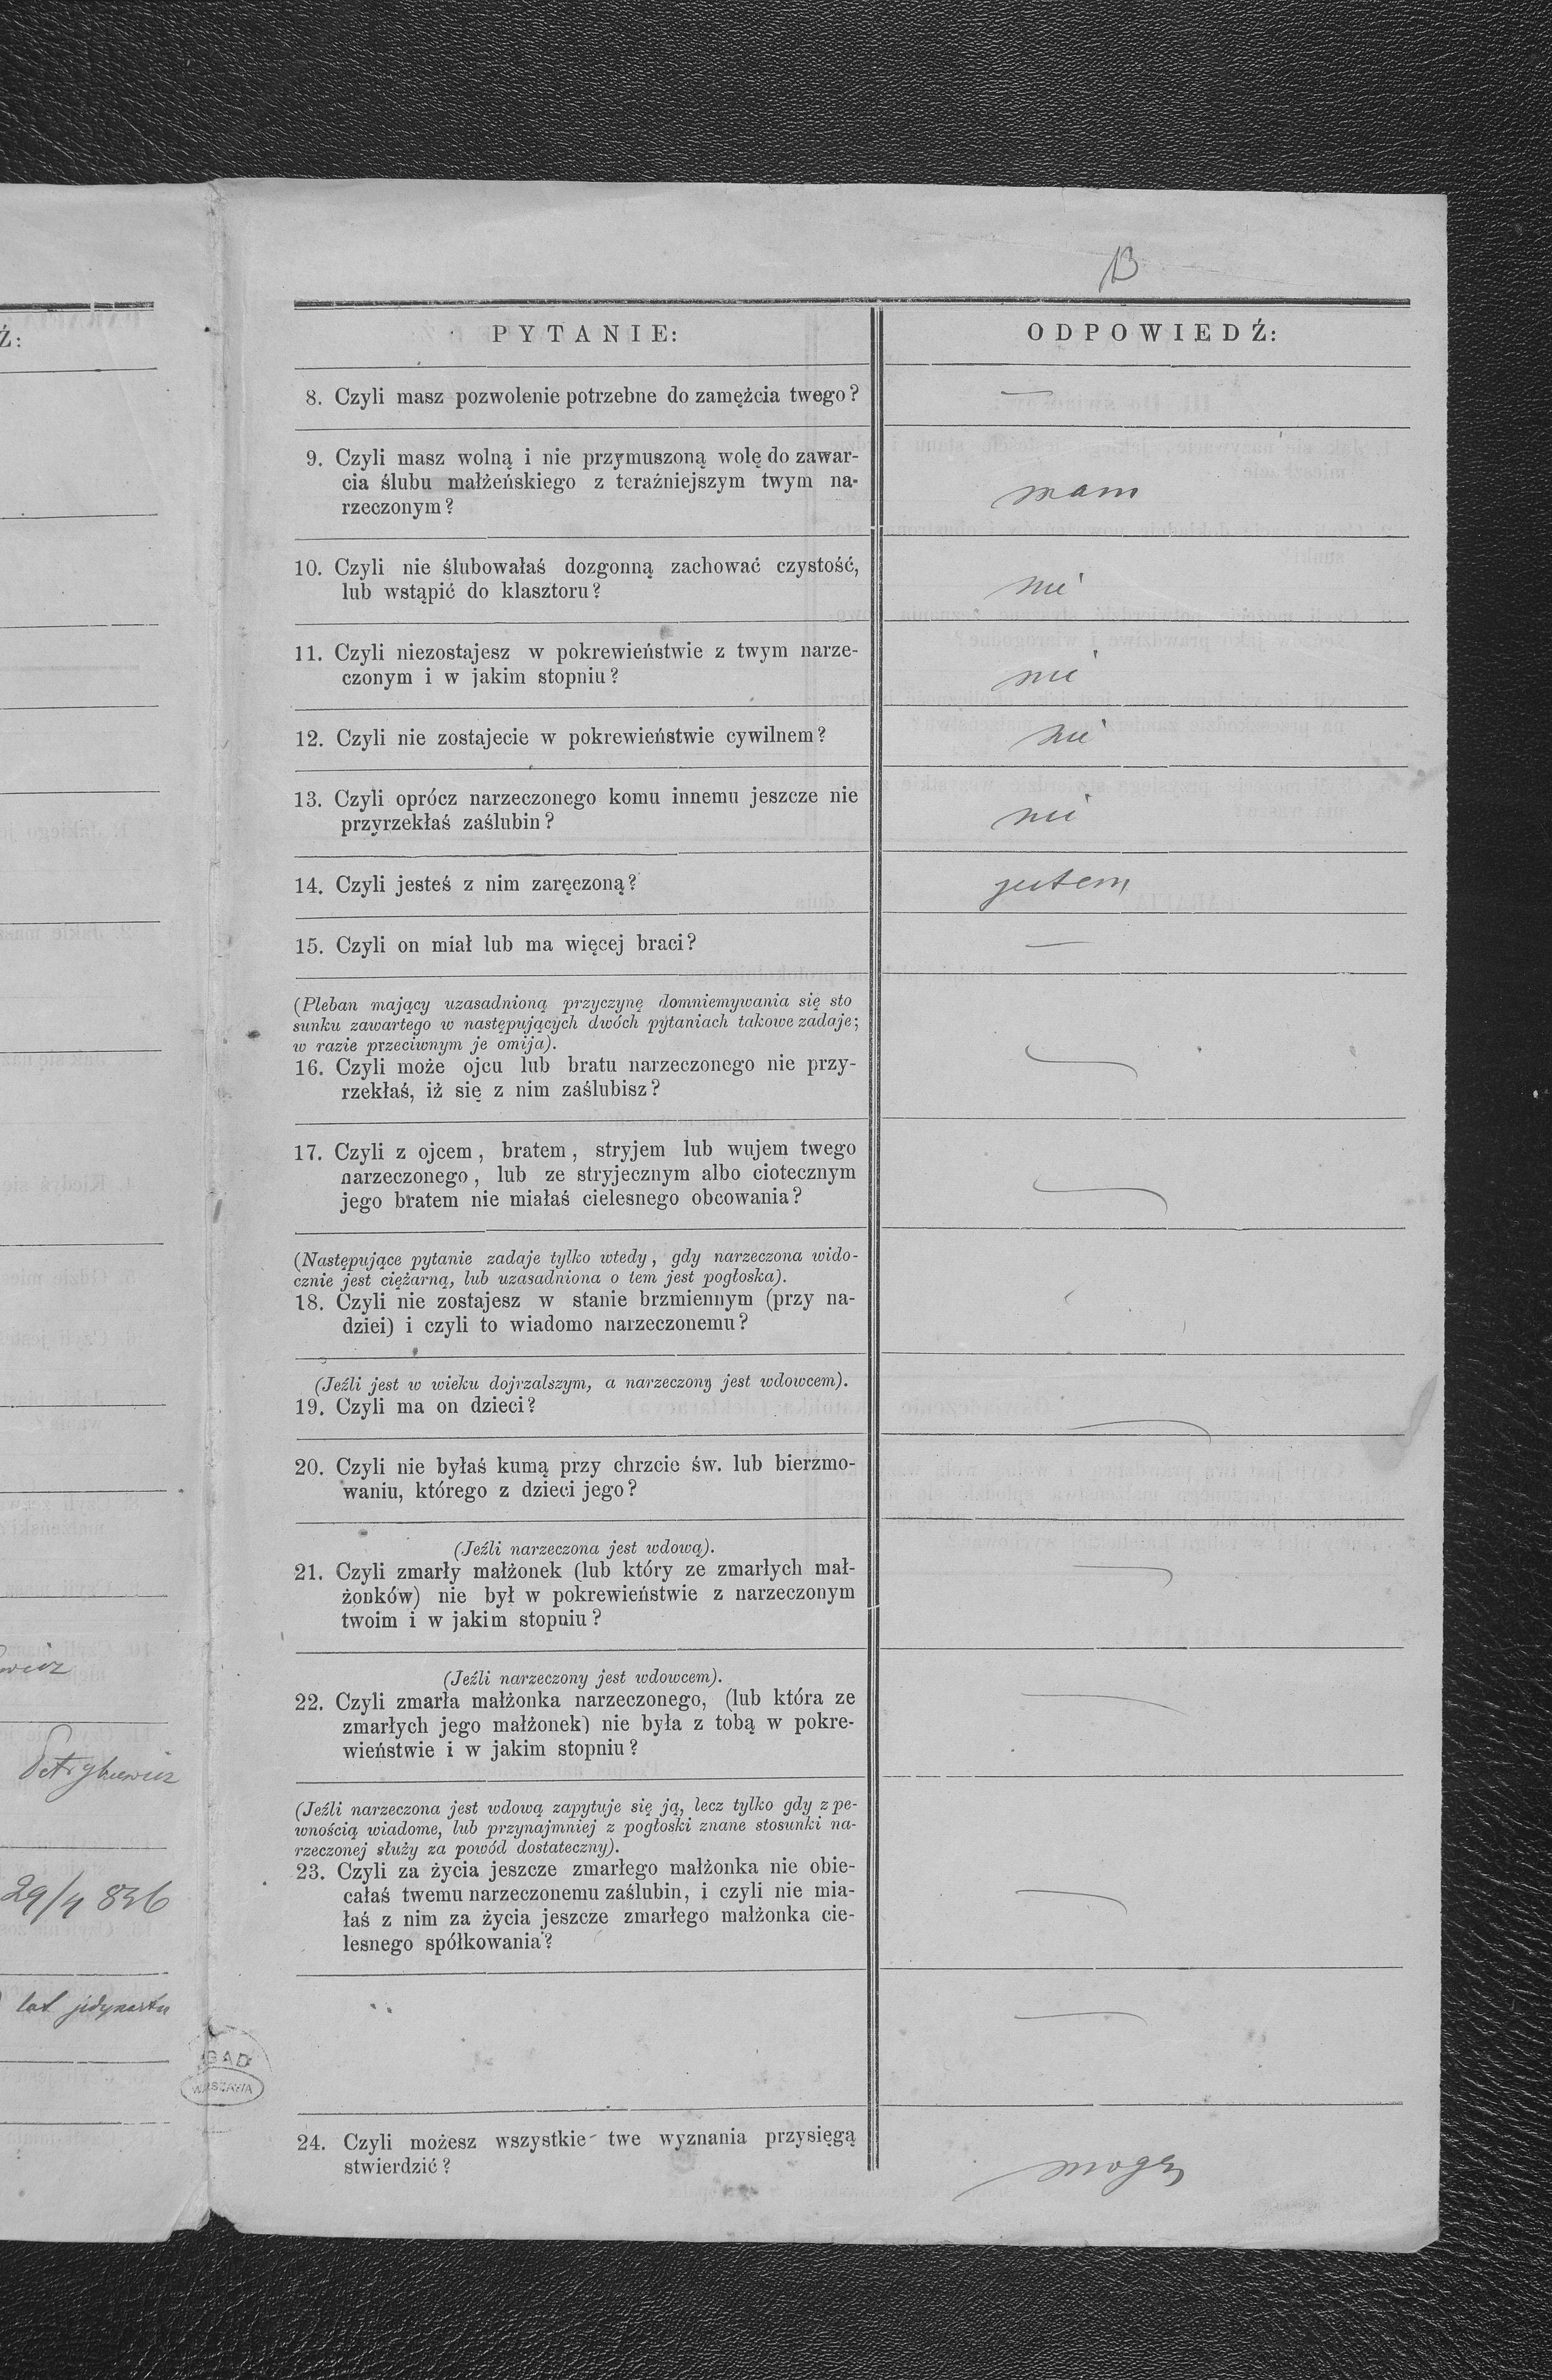 B
Ź:
PYTANIE:
ODPOWIEDŹ:
8. Czyli masz pozwolenie potrzebne do zamężcia twego?
—
9. Czyli masz wolną i nie przymuszoną wolę do zawar-
cia ślubu małżeńskiego z teraźniejszym twym na-
rzeczonym?
mam
10. Czyli nie ślubowałaś dozgonną zachować czystość,
lub wstąpić do klasztoru?
nie
11. Czyli niezostajesz w pokrewieństwie z twym narze-
czonym i w jakim stopniu?
nie
12. Czyli nie zostajecie w pokrewieństwie cywilnem?
nie
13. Czyli oprócz narzeczonego komu innemu jeszcze nie
przyrzekłaś zaślubin?
nie
14. Czyli jesteś z nim zaręczoną?
jestem
15. Czyli on miał lub ma więcej braci?
—
(Pleban mający uzasadnioną przyczynę domniemywania się sto
sunku zawartego w następujących dwóch pytaniach takowe zadaje;
w razie przeciwnym je omija).
16. Czyli może ojcu lub bratu narzeczonego nie przy-
rzekłaś, iż się z nim zaślubisz?
17. Czyli z ojcem, bratem, stryjem lub wujem twego
narzeczonego, lub ze stryjecznym albo ciotecznym
jego bratem nie miałaś cielesnego obcowania?
(Następujące pytanie zadaje tylko wtedy, gdy narzeczona wido-
cznie jest ciężarną, lub uzasadniona o tem jest pogłoska).
18. Czyli nie zostajesz w stanie brzmiennym (przy na-
dziei) i czyli to wiadomo narzeczonemu?
(Jeźli jest w wieku dojrzalszym, a narzeczony jest wdowcem).
19. Czyli ma on dzieci?
20. Czyli nie byłaś kumą przy chrzcie św. lub bierzmo-
waniu, którego z dzieci jego?
(Jeźli narzeczona jest wdową).
21. Czyli zmarły małżonek (lub który ze zmarłych mał-
żonków) nie był w pokrewieństwie z narzeczonym
twoim i w jakim stopniu?
(Jeźli narzeczony jest wdowcem).
22. Czyli zmarła małżonka narzeczonego, (lub która ze
zmarłych jego małżonek) nie była z tobą w pokre-
wieństwie i w jakim stopniu?
(Jeźli narzeczona jest wdową zapytuje się ją, lecz tylko gdy z pe-
wnością wiadome, lub przynajmniej z pogłoski znane stosunki na-
rzeczonej służy za powód dostateczny).
23. Czyli za życia jeszcze zmarłego małżonka nie obie-
całaś twemu narzeczonemu zaślubin, i czyli nie mia-
łaś z nim za życia jeszcze zmarłego małżonka cie-
lesnego spółkowania?
24. Czyli możesz wszystkie twe wyznania przysięgą
stwierdzić?
mogę
wicz
29/4 836
lat jedynastu
AGAD
WARSZAWA